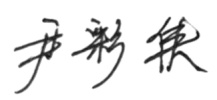 尹彩侠